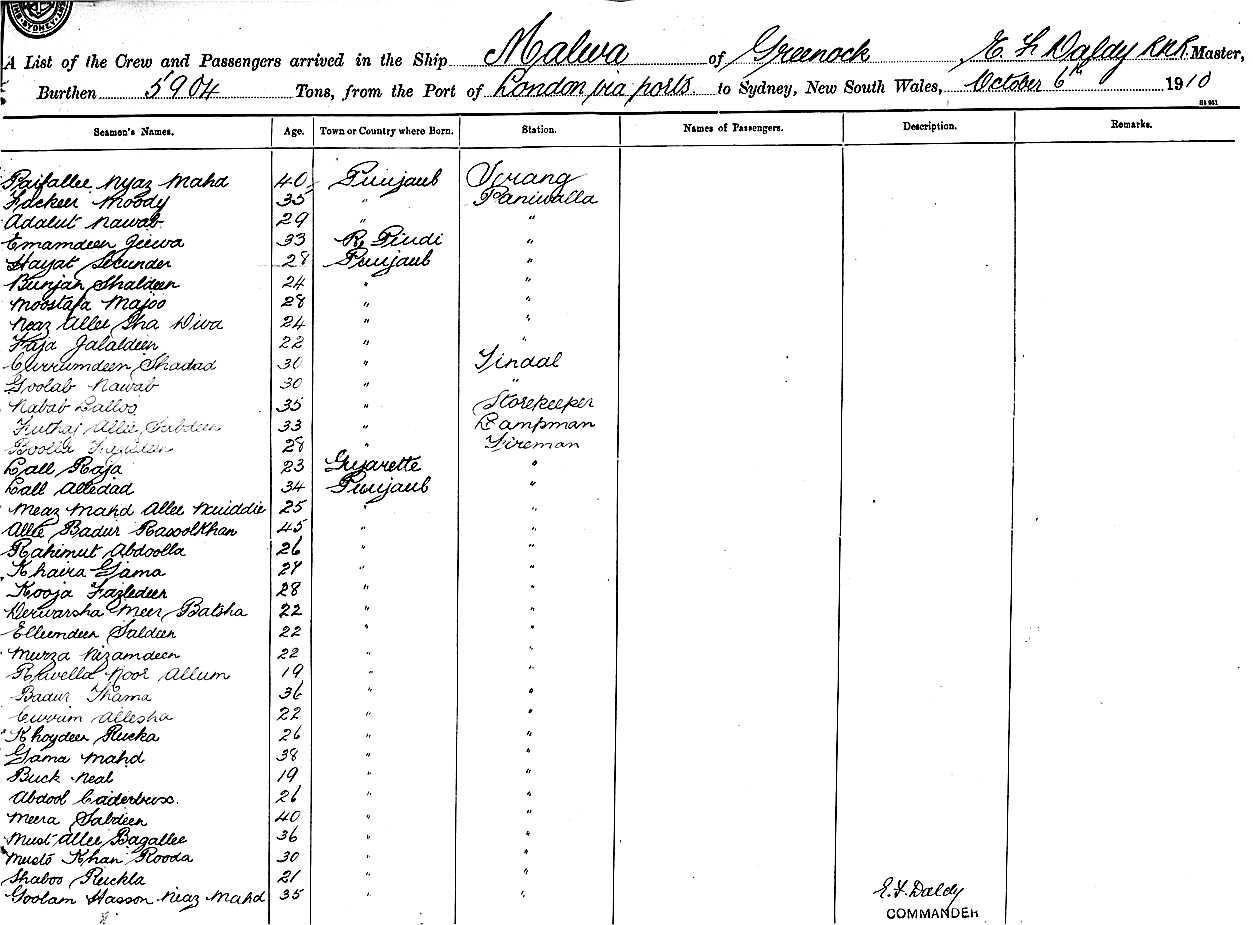 SYDNEY
A List of the Crew and Passengers arrived in the Ship Malwa of Greenock E. F. Daldy R.N.R. Master,
Burthen 5904 Tons, from the Port of London via ports to Sydney, New South Wales, October 6th 1910
Seamen's Names. Age. Town or Country where Born. Station. Names of Passengers. Description. Remarks.
Raifallee Nyaz Mahd 40 Punjaub Serang
Fackeer Moody 35 " Paniwalla
Adalut Nawab 29 " "
Emamdeen Jeewa 33 R. Pindi "
Hayat Secunder 28 Punjaub "
Bunjah Shaldeen 24 " "
Moostafa Majoo 28 " "
Neaz Allee Sha Diwa 24 " "
Faja Jalaldeen 22 " "
Currumdeen Shadad 30 " Tindal
Goolab Nawab 30 " "
Nabab Lalloo 35 " Storekeeper
Futhaj Allee Sabdeen 33 " Lampman
Boolla 28 " Fireman
Lall Raja 23 Gujarette "
Lall Alledad 34 Punjaub "
Meaz Mahd Allee 25 " "
Allee Badur Rasoolkhan 45 " "
Rahimut Abdoolla 26 " "
Khaira Gama 27 " "
Kooja Fazledeen 28 " "
Derwarsha Meer Batsha 22 " "
Elleemdeen Saldeen 22 " "
Murza Nizamdeen 22 " "
Ruvella Noor Allum 19 " "
Badur Thama 36 " "
Currim Allesha 22 " "
Khoydeen Rucka 26 " "
Gama Mahd 38 " "
Buck Neal 19 " "
Abdool Caderbux. 26 " "
Meera Sabdeen 40 " "
Must Allee Bagallee 36 " "
Musto Khan Rooda 30 " "
Shaboo Ruckla 21 " "
Goolam Hasson Neaz Mahd 35 " "
E. F. Daldy
COMMANDER